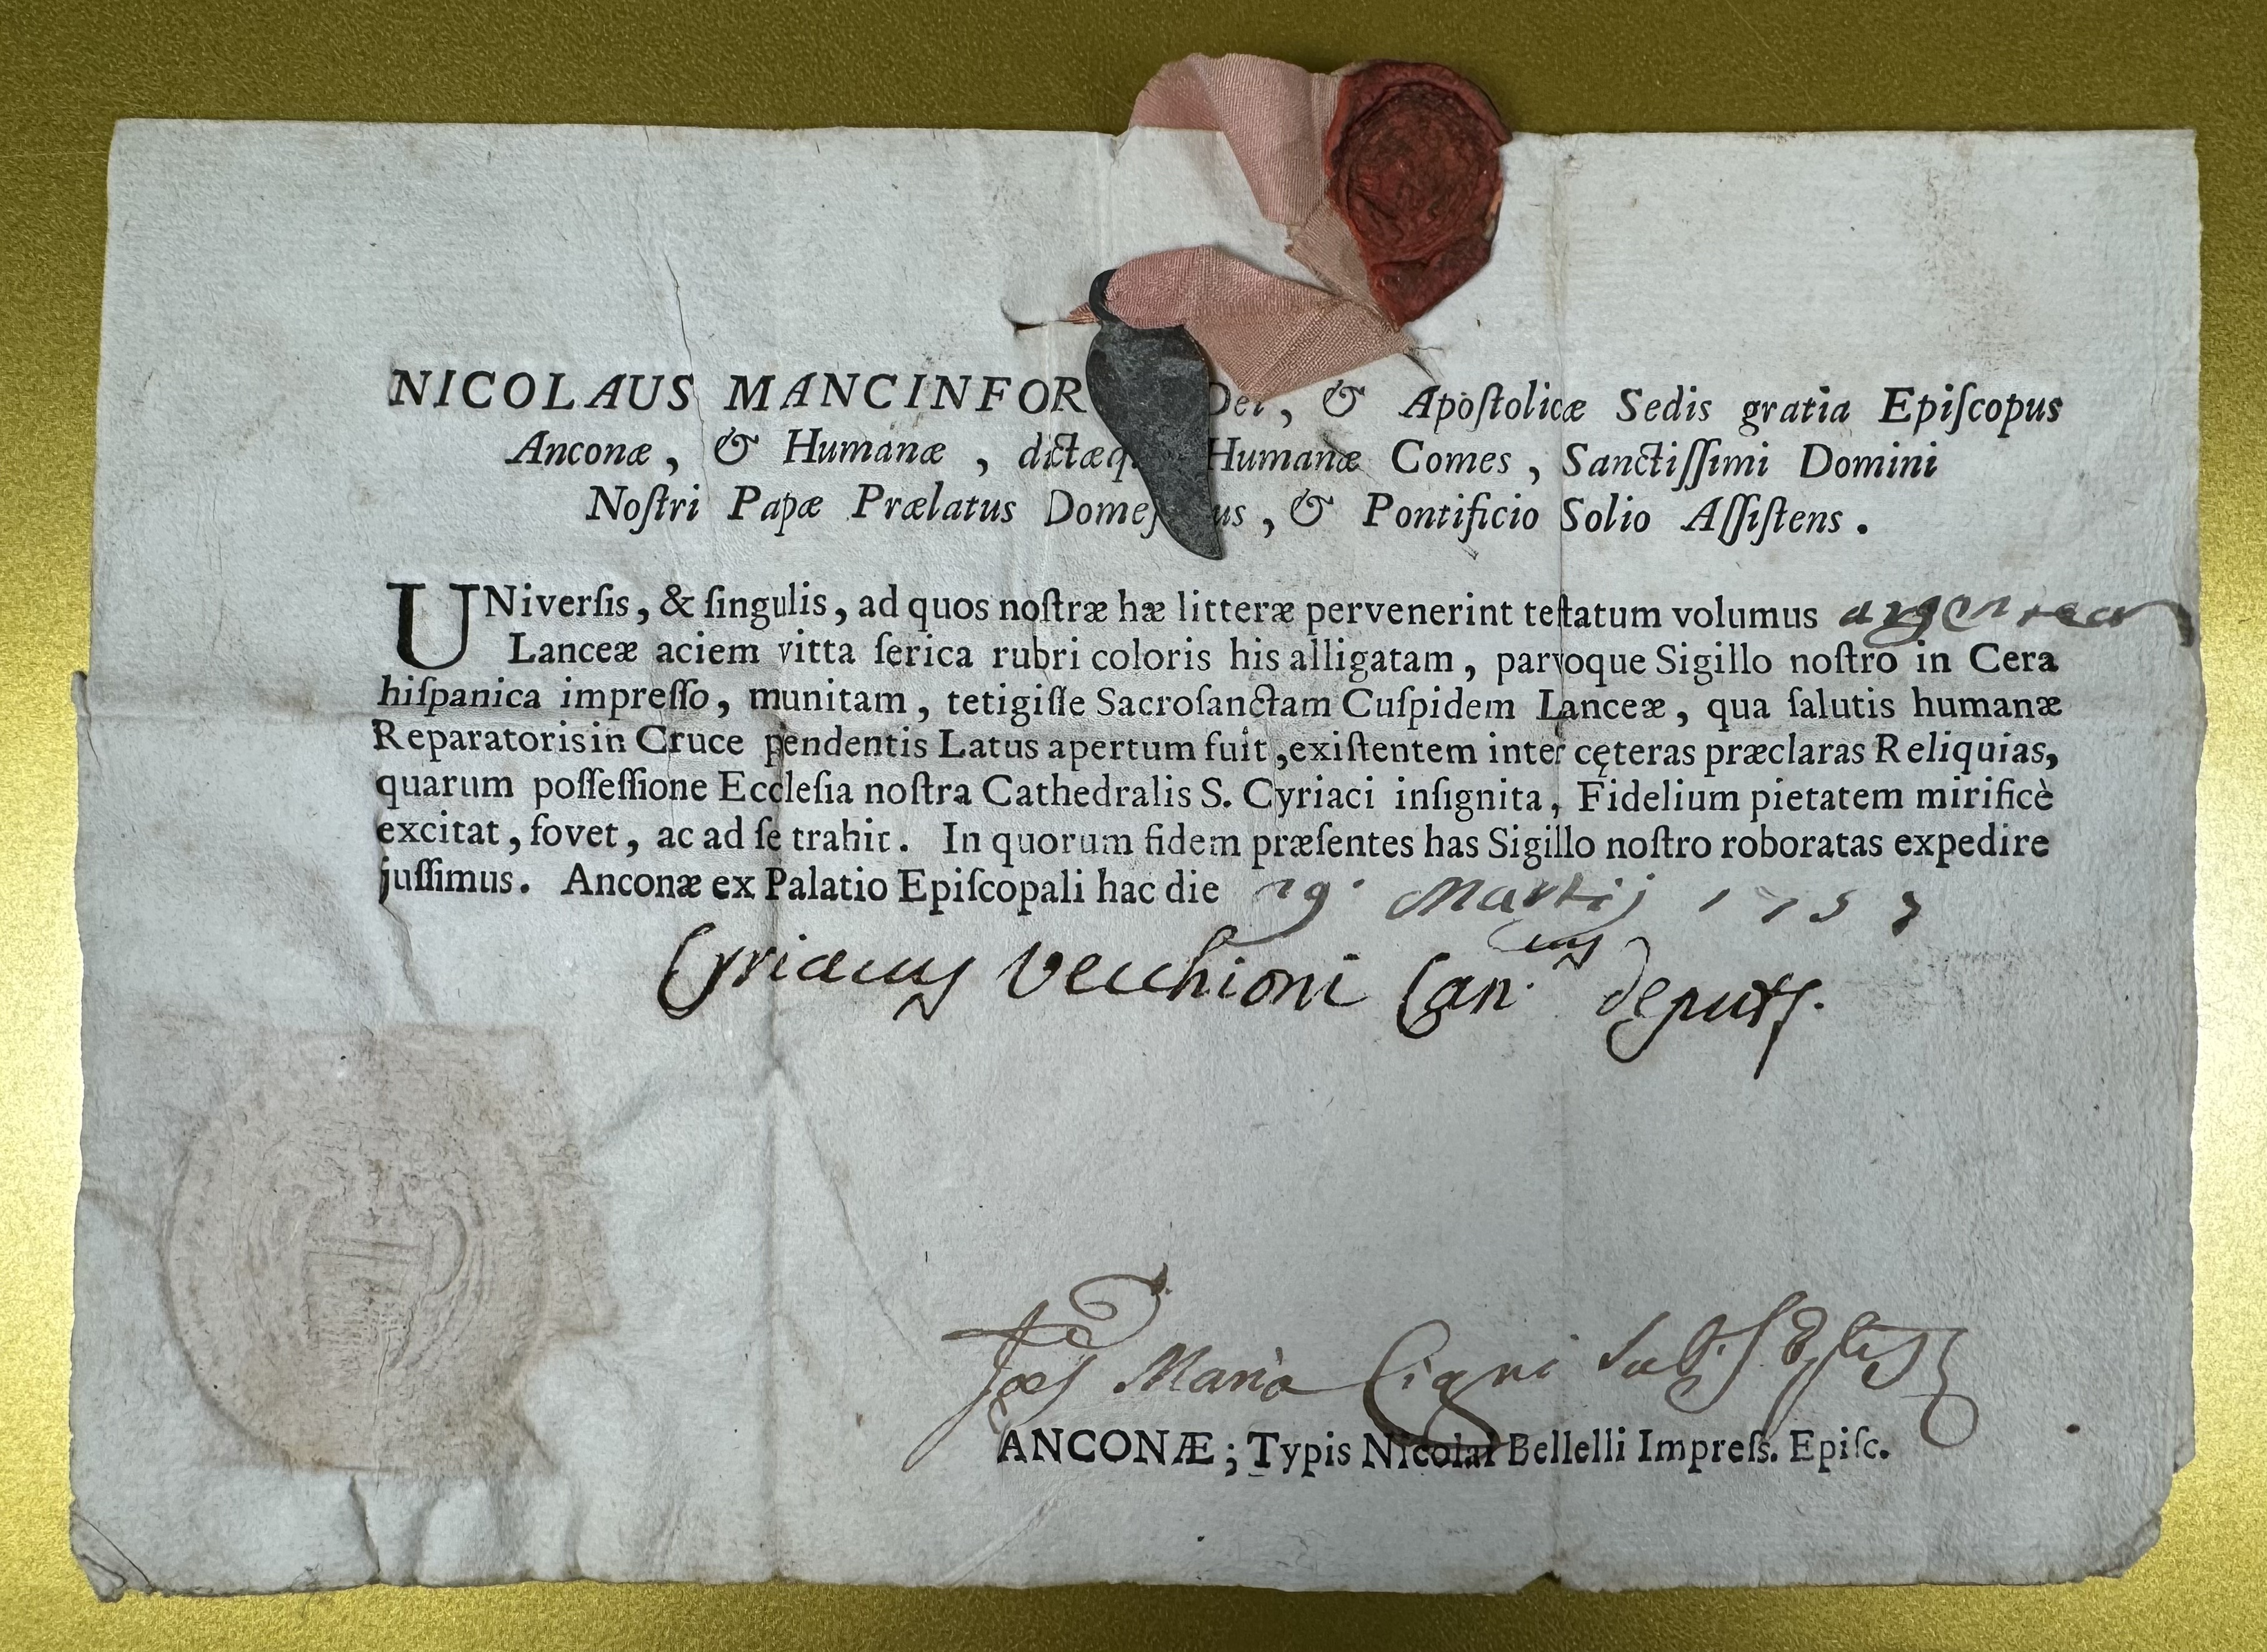 NICOLAUS MANCINFOR Dei, & Apoſtolicæ Sedis gratia Epiſcopus
Anconæ, & Humanæ, dictæq Humanæ Comes, Sanctiſſimi Domini
Noſtri Papæ Prælatus Domeſ us, & Pontificio Solio Aſſiſtens.
UNiverſis, & ſingulis, ad quos noſtræ hæ litteræ pervenerint teſtatum volumus argenteam
Lanceæ aciem vitta ſerica rubri coloris his alligatam, parvoque Sigillo noſtro in Cera
hiſpanica impreſſo, munitam, tetigiſſe Sacroſanctam Cuſpidem Lanceæ, qua ſalutis humanæ
Reparatoris in Cruce pendentis Latus apertum fuit, exiſtentem inter cęteras præclaras Reliquias,
quarum poſſeſſione Eccleſia noſtra Cathedralis S. Cyriaci inſignita, Fidelium pietatem mirificè
excitat, fovet, ac ad ſe trahit. In quorum fidem præſentes has Sigillo noſtro roboratas expedire
juſſimus. Anconæ ex Palatio Epiſcopali hac die 19. Martij
Cyriacus Vecchioni Can.cus deput.
Maria Cigni
ANCONÆ; Typis Nicolai Bellelli Impreſs. Epiſc.